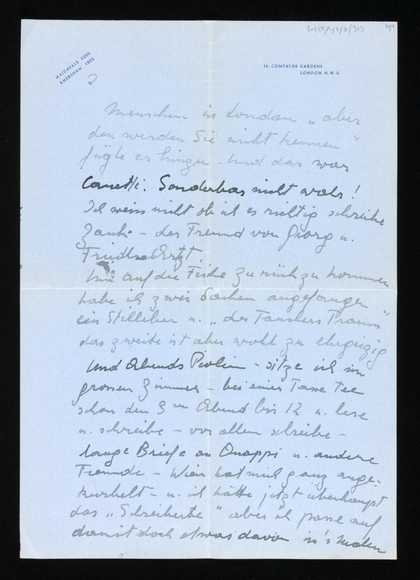 COMPAYNE GARDENS
LONDON N.W.6
Menschen in London „aber
den werden Sie nicht kennen"
fügte er hinzu. Und das war
Canetti. Sonderbar nicht wahr!
Ich weiss nicht ob ich es richtig schreibe
– der Freund von Georg u.
auf die Fische zurück zu kommen
habe ich zwei Sachen angefangen
ein Stilleben u. „des Tauchers Traum"
das zweite ist aber wohl zu ehrgeizig
Und Abends – sitze ich im
grossen Zimmer – bei einer Tasse Tee
schon den 3ten Abend bis 12 u. lese
u. schreibe – vor allem schreibe –
lange Briefe an Quappi u. andere
Freunde – Wien hat mich ganz ange-
kurbelt – u. ich hätte jetzt überhaupt
das „Schreiberte" aber ich passe auf
damit doch etwas davon in's Malen